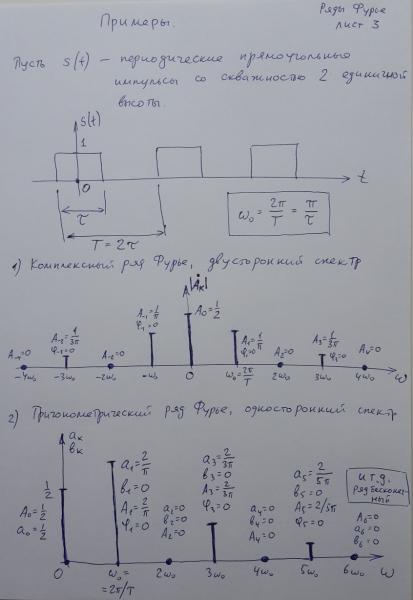 Ряды Фурье
лист 3
Примеры.
Пусть s(t) – периодические прямоугольные
импульсы со скважностью 2 единичной
высоты.
s(t)
1
0
t
τ
T = 2τ
ω₀ = 2π/T = π/τ
1) Комплексный ряд Фурье, двусторонний спектр
|Ȧₖ|
A₀ = 1/2
A₋₁ = 1/π
φ₋₁ = 0
A₁ = 1/π
φ₁ = 0
A₋₄ = 0
φ₋₃ = 0
A₋₂ = 0
A₂ = 0
A₃ = 1/3π
A₄ = 0
-4ω₀ -3ω₀ -2ω₀ -ω₀ 0 ω₀ = 2π/T 2ω₀ 3ω₀ 4ω₀ ω
2) Тригонометрический ряд Фурье, односторонний спектр
aₖ
bₖ
1/2
A₀ = 1/2
a₀ = 1/2
a₁ = 2/π
b₁ = 0
A₁ = 2/π
φ₁ = 0
a₂ = 0
b₂ = 0
A₂ = 0
a₃ = 2/3π
b₃ = 0
A₃ = 2/3π
φ₃ = 0
a₄ = 0
b₄ = 0
A₄ = 0
a₅ = 2/5π
b₅ = 0
A₅ = 2/5π
φ₅ = 0
и т.д.
ряд бесконеч-
ный
A₆ = 0
a₆ = 0
b₆ = 0
0 ω₀ = 2ω₀ 3ω₀ 4ω₀ 5ω₀ 6ω₀ ω
= 2π/T